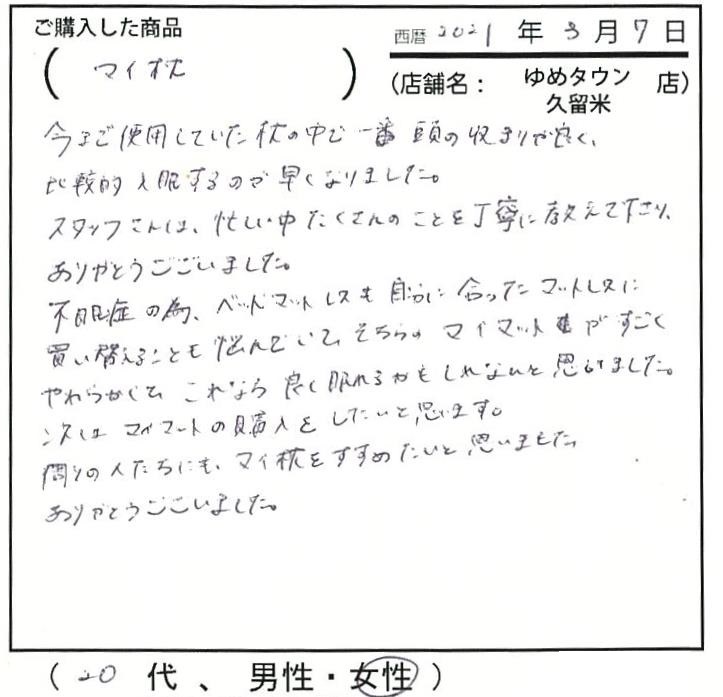 ご購入した商品
(マイ枕)
西暦 2021 年 3 月 7 日
(店舗名: ゆめタウン久留米 店)
今まで使用していた枕の中で一番頭の収まりが良く、
比較的入眠するのが早くなりました。
スタッフさんは、忙しい中たくさんのことを丁寧に教えて下さり、
ありがとうございました。
不眠症の為、ベッドマットレスも自分に合ったマットレスに
買い替えることも悩んでいて、そちらのマイマットがすごく
やわらかくて、これなら良く眠れるかもしれないと思いました。
次はマイマットの購入をしたいと思います。
周りの人たちにも、マイ枕をすすめたいと思いました。
ありがとうございました。
(20 代、男性・女性)